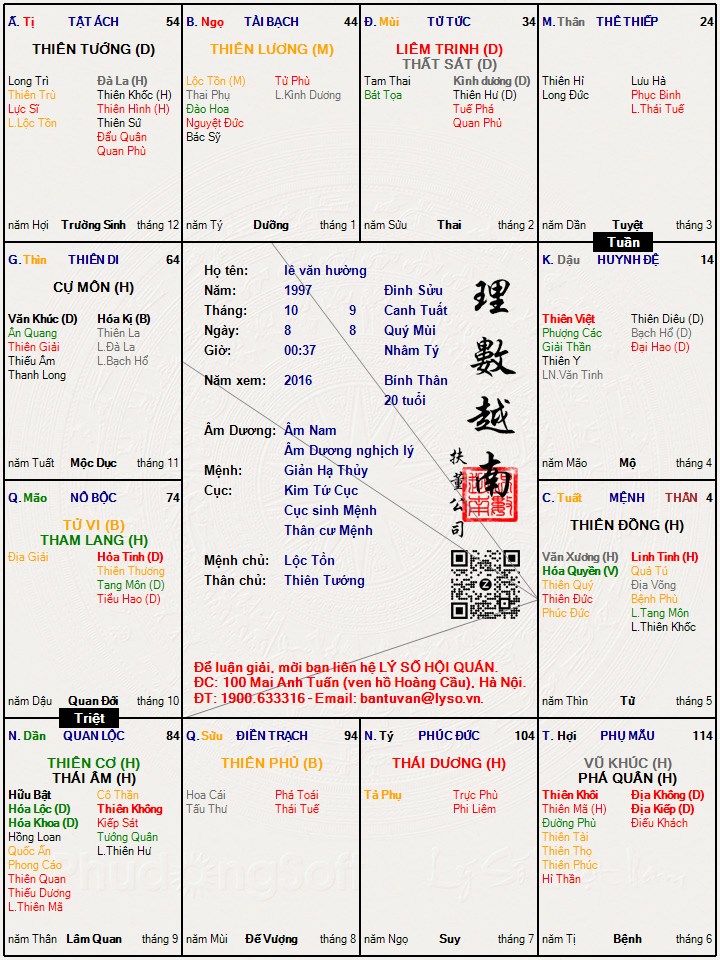 Ấ. Tị TẬT ÁCH 54
THIÊN TƯỚNG (D)
Long Trì
Thiên Trù
Lực Sĩ
L.Lộc Tồn
Đà La (H)
Thiên Khốc (H)
Thiên Hình (H)
Thiên Sứ
Đẩu Quân
Quan Phù
năm Hợi Trường Sinh tháng 12
B. Ngọ TÀI BẠCH 44
THIÊN LƯƠNG (M)
Lộc Tồn (M)
Thai Phụ
Đào Hoa
Nguyệt Đức
Bác Sỹ
Tử Phù
L.Kình Dương
năm Tý Dưỡng tháng 1
Đ. Mùi TỬ TỨC 34
LIÊM TRINH (D)
THẤT SÁT (D)
Tam Thai
Bát Tọa
Kình dương (D)
Thiên Hư (D)
Tuế Phá
Quan Phủ
năm Sửu Thai tháng 2
M. Thân THÊ THIẾP 24
Thiên Hỉ
Long Đức
Lưu Hà
Phục Binh
L.Thái Tuế
năm Dần Tuyệt tháng 3
Tuần
G. Thìn THIÊN DI 64
CỰ MÔN (H)
Văn Khúc (D)
Ân Quang
Thiên Giải
Thiếu Âm
Thanh Long
Hóa Kị (B)
Thiên La
L.Đà La
L.Bạch Hổ
năm Tuất Mộc Dục tháng 11
Họ tên: lê văn hường
Năm: 1997 Đinh Sửu
Tháng: 10 9 Canh Tuất
Ngày: 8 8 Quý Mùi
Giờ: 00:37 Nhâm Tý
Năm xem: 2016 Bính Thân
20 tuổi
Âm Dương: Âm Nam
Âm Dương nghịch lý
Mệnh: Giản Hạ Thủy
Cục: Kim Tứ Cục
Cục sinh Mệnh
Thân cư Mệnh
Mệnh chủ: Lộc Tồn
Thân chủ: Thiên Tướng
理數越南
扶董公司
Để luận giải, mời bạn liên hệ LÝ SỐ HỘI QUÁN.
ĐC: 100 Mai Anh Tuấn (ven hồ Hoàng Cầu), Hà Nội.
ĐT: 1900.633316 - Email: bantuvan@lyso.vn.
K. Dậu HUYNH ĐỆ 14
Thiên Việt
Phượng Các
Giải Thần
Thiên Y
LN.Văn Tinh
Thiên Diêu (D)
Bạch Hổ (D)
Đại Hao (D)
năm Mão Mộ tháng 4
Q. Mão NÔ BỘC 74
TỬ VI (B)
THAM LANG (H)
Địa Giải
Hỏa Tinh (D)
Thiên Thương
Tang Môn (D)
Tiểu Hao (D)
năm Dậu Quan Đới tháng 10
C. Tuất MỆNH THÂN 4
THIÊN ĐỒNG (H)
Văn Xương (H)
Hóa Quyền (V)
Thiên Quý
Thiên Đức
Phúc Đức
Linh Tinh (H)
Quả Tú
Địa Võng
Bệnh Phù
L.Tang Môn
L.Thiên Khốc
năm Thìn Tử tháng 5
Triệt
N. Dần QUAN LỘC 84
THIÊN CƠ (H)
THÁI ÂM (H)
Hữu Bật
Hóa Lộc (D)
Hóa Khoa (D)
Hồng Loan
Quốc Ấn
Phong Cáo
Thiên Quan
Thiếu Dương
L.Thiên Mã
Cô Thần
Thiên Không
Kiếp Sát
Tướng Quân
L.Thiên Hư
năm Thân Lâm Quan tháng 9
Q. Sửu ĐIỀN TRẠCH 94
THIÊN PHỦ (B)
Hoa Cái
Tấu Thư
Phá Toái
Thái Tuế
năm Mùi Đế Vượng tháng 8
N. Tý PHÚC ĐỨC 104
THÁI DƯƠNG (H)
Tả Phụ
Trực Phù
Phi Liêm
năm Ngọ Suy tháng 7
T. Hợi PHỤ MẪU 114
VŨ KHÚC (H)
PHÁ QUÂN (H)
Thiên Khôi
Thiên Mã (H)
Đường Phù
Thiên Tài
Thiên Thọ
Thiên Phúc
Hỉ Thần
Địa Không (D)
Địa Kiếp (D)
Điếu Khách
năm Tị Bệnh tháng 6